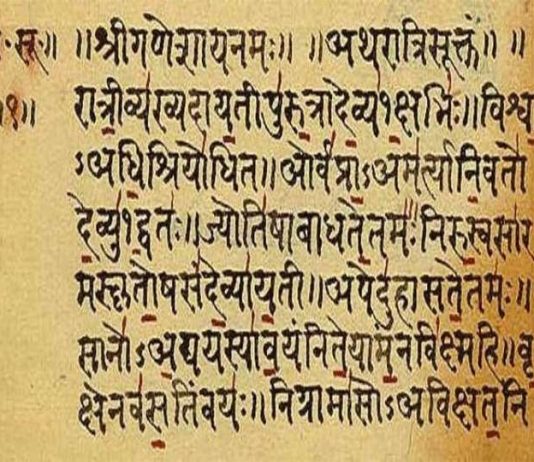 ॰सू॰॥ ॥श्रीगणेशायनमः॥ ॥अथरात्रिसूक्तं॥ ॥
१॥ रात्रीव्यख्यदायतीपुरुत्रादेव्य१क्षभिः॥विश्व
ऽअधिश्रियोधित॥ओर्वप्राऽअमर्त्यानिवतो
देव्यु१द्वतः॥ज्योतिषाबाधतेतमः॥निरुस्वसार
मस्कृतोषसंदेव्यायती॥अपेदुहासतेतमः॥
सानोऽअद्ययस्यावयंनितेयामन्नविक्ष्महि॥वृ
क्षेनवसतिंवयः॥निग्रामासोऽअविक्षतनि